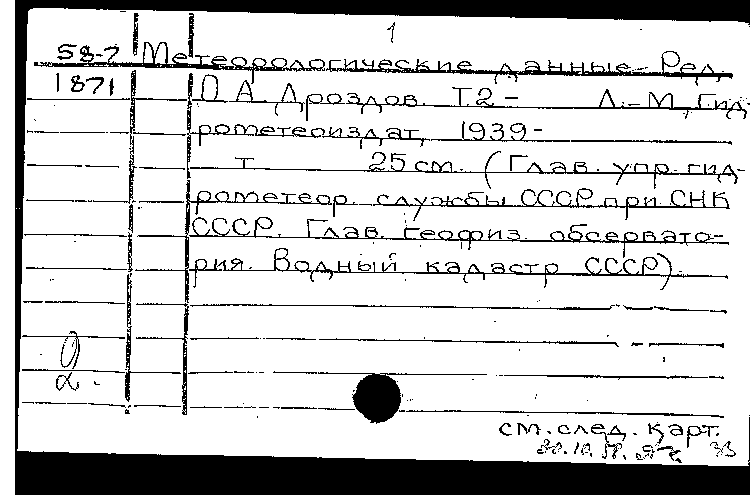 1
58-7 Метеорологические данные. Ред.
1871 О.А. Дроздов. Т.2 - Л.-М., Гид-
рометеоиздат, 1939-
т 25 см. (Глав. упр. гид-
рометеор. службы СССР при СНК
СССР. Глав. геофиз. обсервато-
рия. Водный кадастр СССР).
2.
см. след. карт.